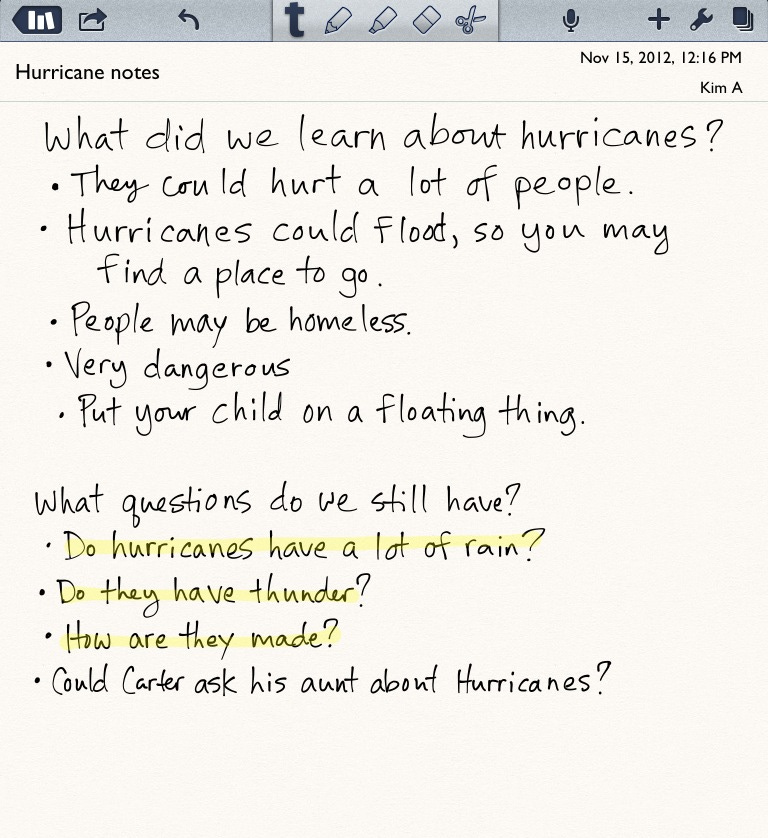 t
Nov 15, 2012, 12:16 PM
Hurricane notes
Kim A
What did we learn about hurricanes?
• They could hurt a lot of people.
• Hurricanes could flood, so you may
find a place to go.
• People may be homeless.
• Very dangerous
• Put your child on a floating thing.
What questions do we still have?
• Do hurricanes have a lot of rain?
• Do they have thunder?
• How are they made?
• Could Carter ask his aunt about Hurricanes?